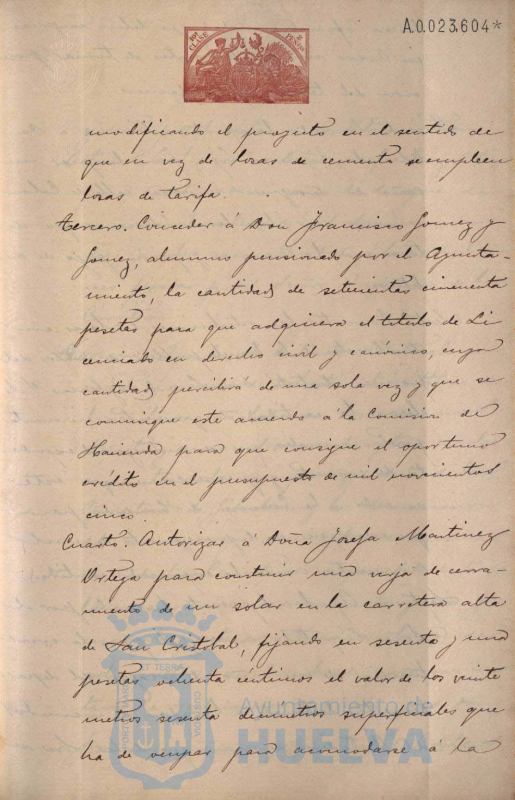 10ª CLASE 2 PESETAS
A.0.023.604*
modificando el proyecto en el sentido de
que en vez de losas de cemento se empleen
losas de tarifa.
Tercero. Conceder á Don Francisco Gomez y
Gomez, alumno pensionado por el Ayunta-
miento, la cantidad de setecientas cincuenta
pesetas para que adquiera el titulo de Li
cenciado en derecho civil y canónico, cuya
cantidad percibirá de una sola vez y que se
comunique este acuerdo á la Comision de
Hacienda para que consigne el oportuno
crédito en el presupuesto de mil novecientos
cinco.
Cuarto. Autorizar á Doña Josefa Martinez
Ortega para construir una verja de cerra-
miento de un solar en la carretera alta
de San Cristobal, fijando en sesenta y una
pesetas ochenta céntimos el valor de los veinte
metros sesenta decimetros superficiales que
ha de ocupar para acomodarse á la
Ayuntamiento de
HUELVA